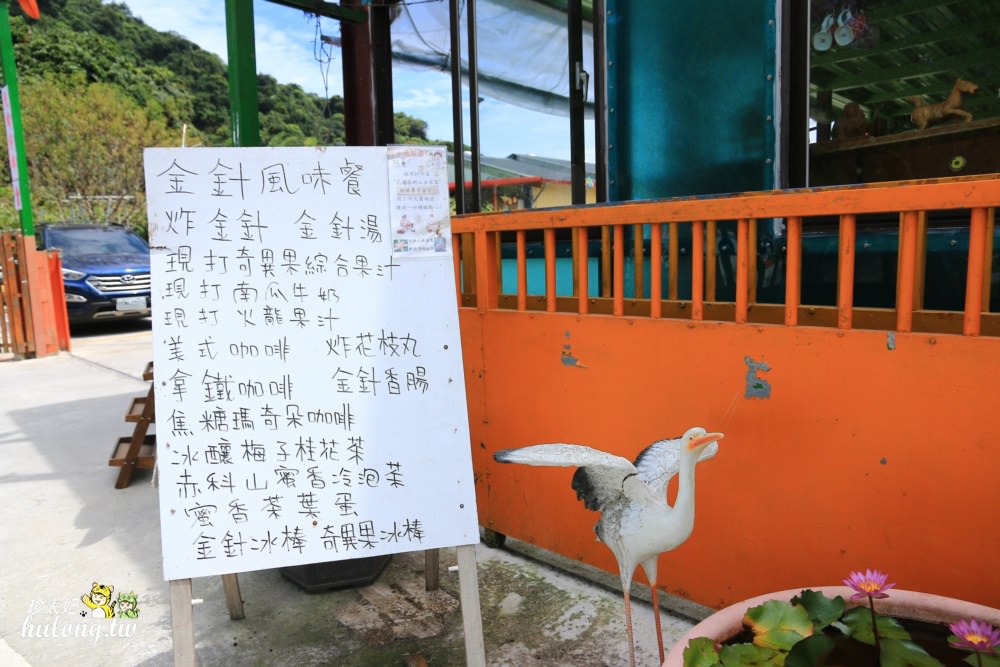 金針風味餐
炸金針 金針湯
現打奇異果綜合果汁
現打南瓜牛奶
現打火龍果汁
美式咖啡 炸花枝丸
拿鐵咖啡 金針香腸
焦糖瑪奇朵咖啡
冰釀梅子桂花茶
赤科山蜜香冷泡茶
蜜香茶葉蛋
金針冰棒 奇異果冰棒
hulong.tw